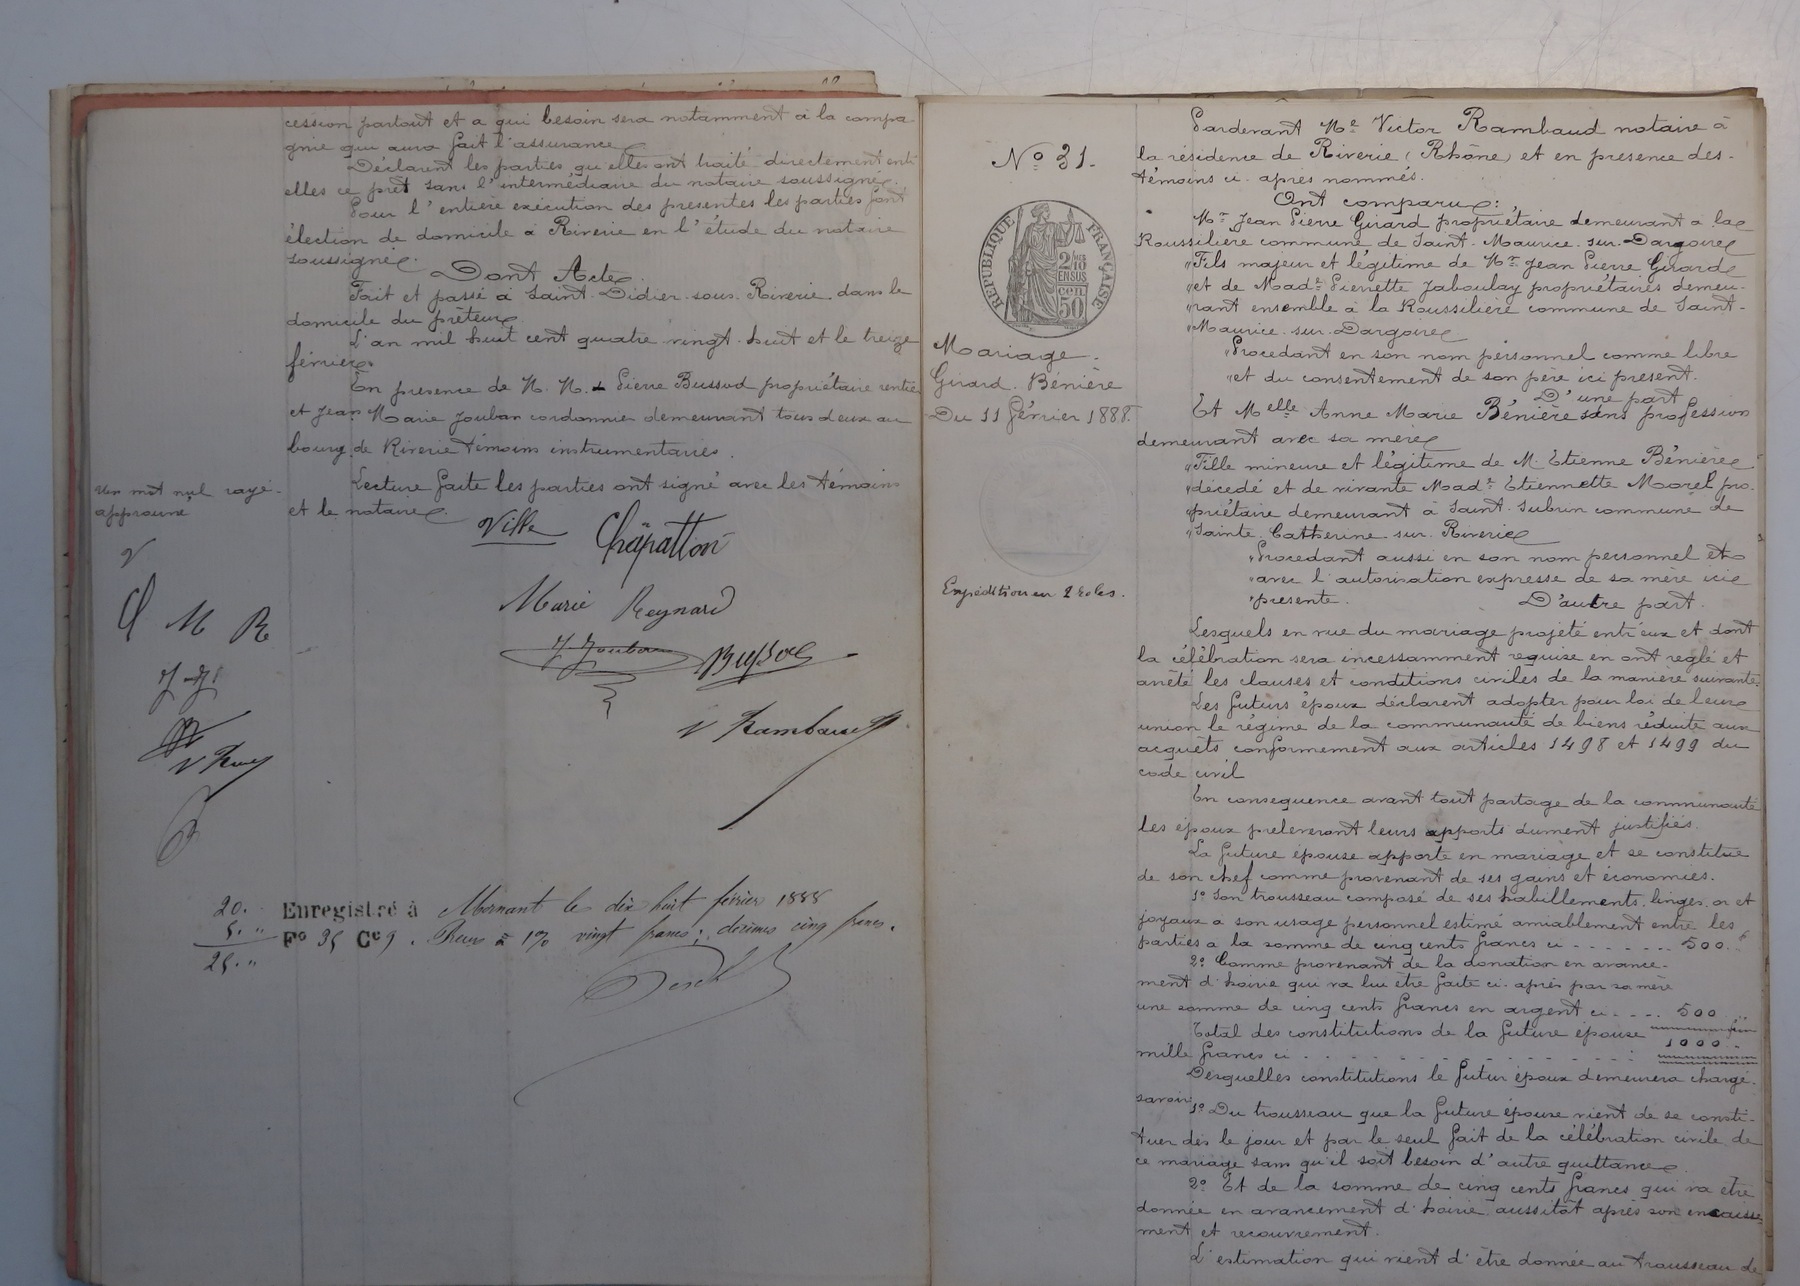 cession partout et a qui besoin sera notamment à la compa
gnie qui aura fait l'assurance
Déclarent les parties qu'elles ont traité directement entr'
elles ce prêt sans l'intermédiaire du notaire soussigné.
Pour l'entière exécution des presentes les parties font
élection de domicile à Riverie en l'étude du notaire
soussigné.
Dont Acte
Fait et passé à Saint-Didier-sous-Riverie dans le
domicile du prêteur
L'an mil huit cent quatre-vingt-huit et le treize
février.
En presence de M. M. Pierre Bussod propriétaire rentier
et Jean Marie Jouban cordonnier demeurant tous deux au
bourg de Riverie témoins instrumentaires.
Lecture faite les parties ont signé avec les témoins
et le notaire
Un mot nul rayé
approuvé
Ville Chapatton
Marie Reynard
J. Jouban Bussod
V Rambaud
V
C M R
J-J
V Ram
20. "
5. "
25. "
Enregistré à Mornant le dix huit février 1888
F° 35 C° 9. Reçu à 1% vingt francs; décimes cinq francs.
N° 31.
RÉPUBLIQUE FRANÇAISE
2/10 EN SUS
50 cen
Mariage.
Girard. Bénière
Du 11 février 1888.
Expédition en 2 roles.
Pardevant Me Victor Rambaud notaire à
la résidence de Riverie (Rhône) et en presence des
témoins ci-après nommés.
Ont comparu:
Mr Jean Pierre Girard propriétaire demeurant à la
Roussilière commune de Saint-Maurice-sur-Dargoire
"Fils majeur et légitime de Mr Jean Pierre Girard
"et de Made Pierrette Jaboulay propriétaires demeu-
"rant ensemble à la Roussilière commune de Saint-
"Maurice-sur-Dargoire
"Procedant en son nom personnel comme libre
"et du consentement de son père ici present.
D'une part
Et Melle Anne Marie Bénière sans profession
demeurant avec sa mère
"Fille mineure et légitime de M. Etienne Bénière
"décédé et de vivante Made Etiennette Morel pro-
"priétaire demeurant à Saint-Subrin commune de
"Sainte Catherine-sur-Riverie
"Procedant aussi en son nom personnel et
"avec l'autorisation expresse de sa mère ici
"presente. D'autre part.
Lesquels en vue du mariage projeté entr'eux et dont
la célébration sera incessamment requise en ont reglé et
arrêté les clauses et conditions civiles de la manière suivante:
Les futurs époux déclarent adopter pour loi de leur
union le régime de la communauté de biens réduite aux
acquêts conformement aux articles 1498 et 1499 du
code civil
En consequence avant tout partage de la communauté
les époux preleveront leurs apports dument justifiés.
La future épouse apporte en mariage et se constitue
de son chef comme provenant de ses gains et économies.
1° Son trousseau composé de ses habillements, linges, or et
joyaux a son usage personnel estimé amiablement entre les
parties a la somme de cinq cents francs ci ....... 500. "
2° Comme provenant de la donation en avance-
ment d'hoirie qui va lui être faite ci-après par sa mère
une somme de cinq cents francs en argent ci .... 500 "
Total des constitutions de la future épouse
mille francs ci ............ 1000 "
Desquelles constitutions le futur époux demeurera chargé
savoir:
1° Du trousseau que la future épouse vient de se consti-
tuer dès le jour et par le seul fait de la célébration civile de
ce mariage sans qu'il soit besoin d'autre quittance
2° Et de la somme de cinq cents francs qui va être
donnée en avancement d'hoirie aussitôt après son encaisse-
ment et recouvrement.
L'estimation qui vient d'être donnée au trousseau de